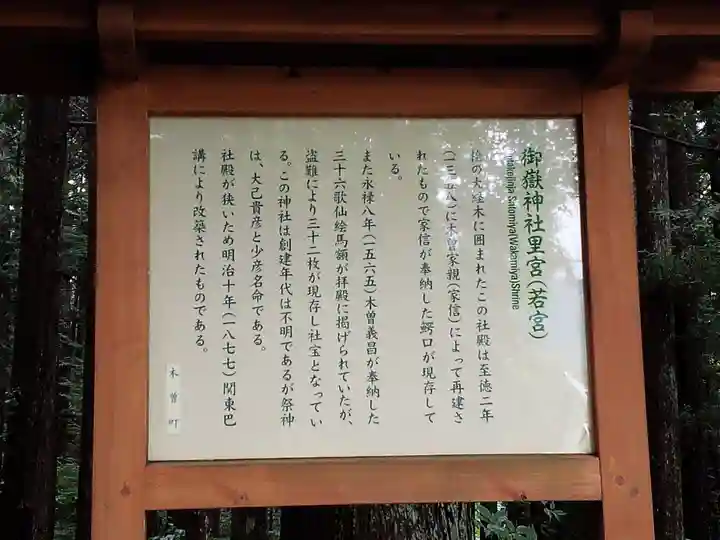 御嶽神社里宮(若宮)
Ontakejinja Satomiya(Wakamiya)Shrine
檜の大経木に囲まれたこの社殿は至徳二年
(一三八五)に木曽家親(家信)によって再建さ
れたもので家信が奉納した鰐口が現存して
いる。
また永禄八年(一五六五)木曽義昌が奉納した
三十六歌仙絵馬額が拝殿に掲げられていたが、
盗難により三十二枚が現存し社宝となってい
る。この神社は創建年代は不明であるが祭神
は、大己貴彦と少彦名命である。
社殿が狭いため明治十年(一八七七)関東巴
講により改築されたものである。
木曽町